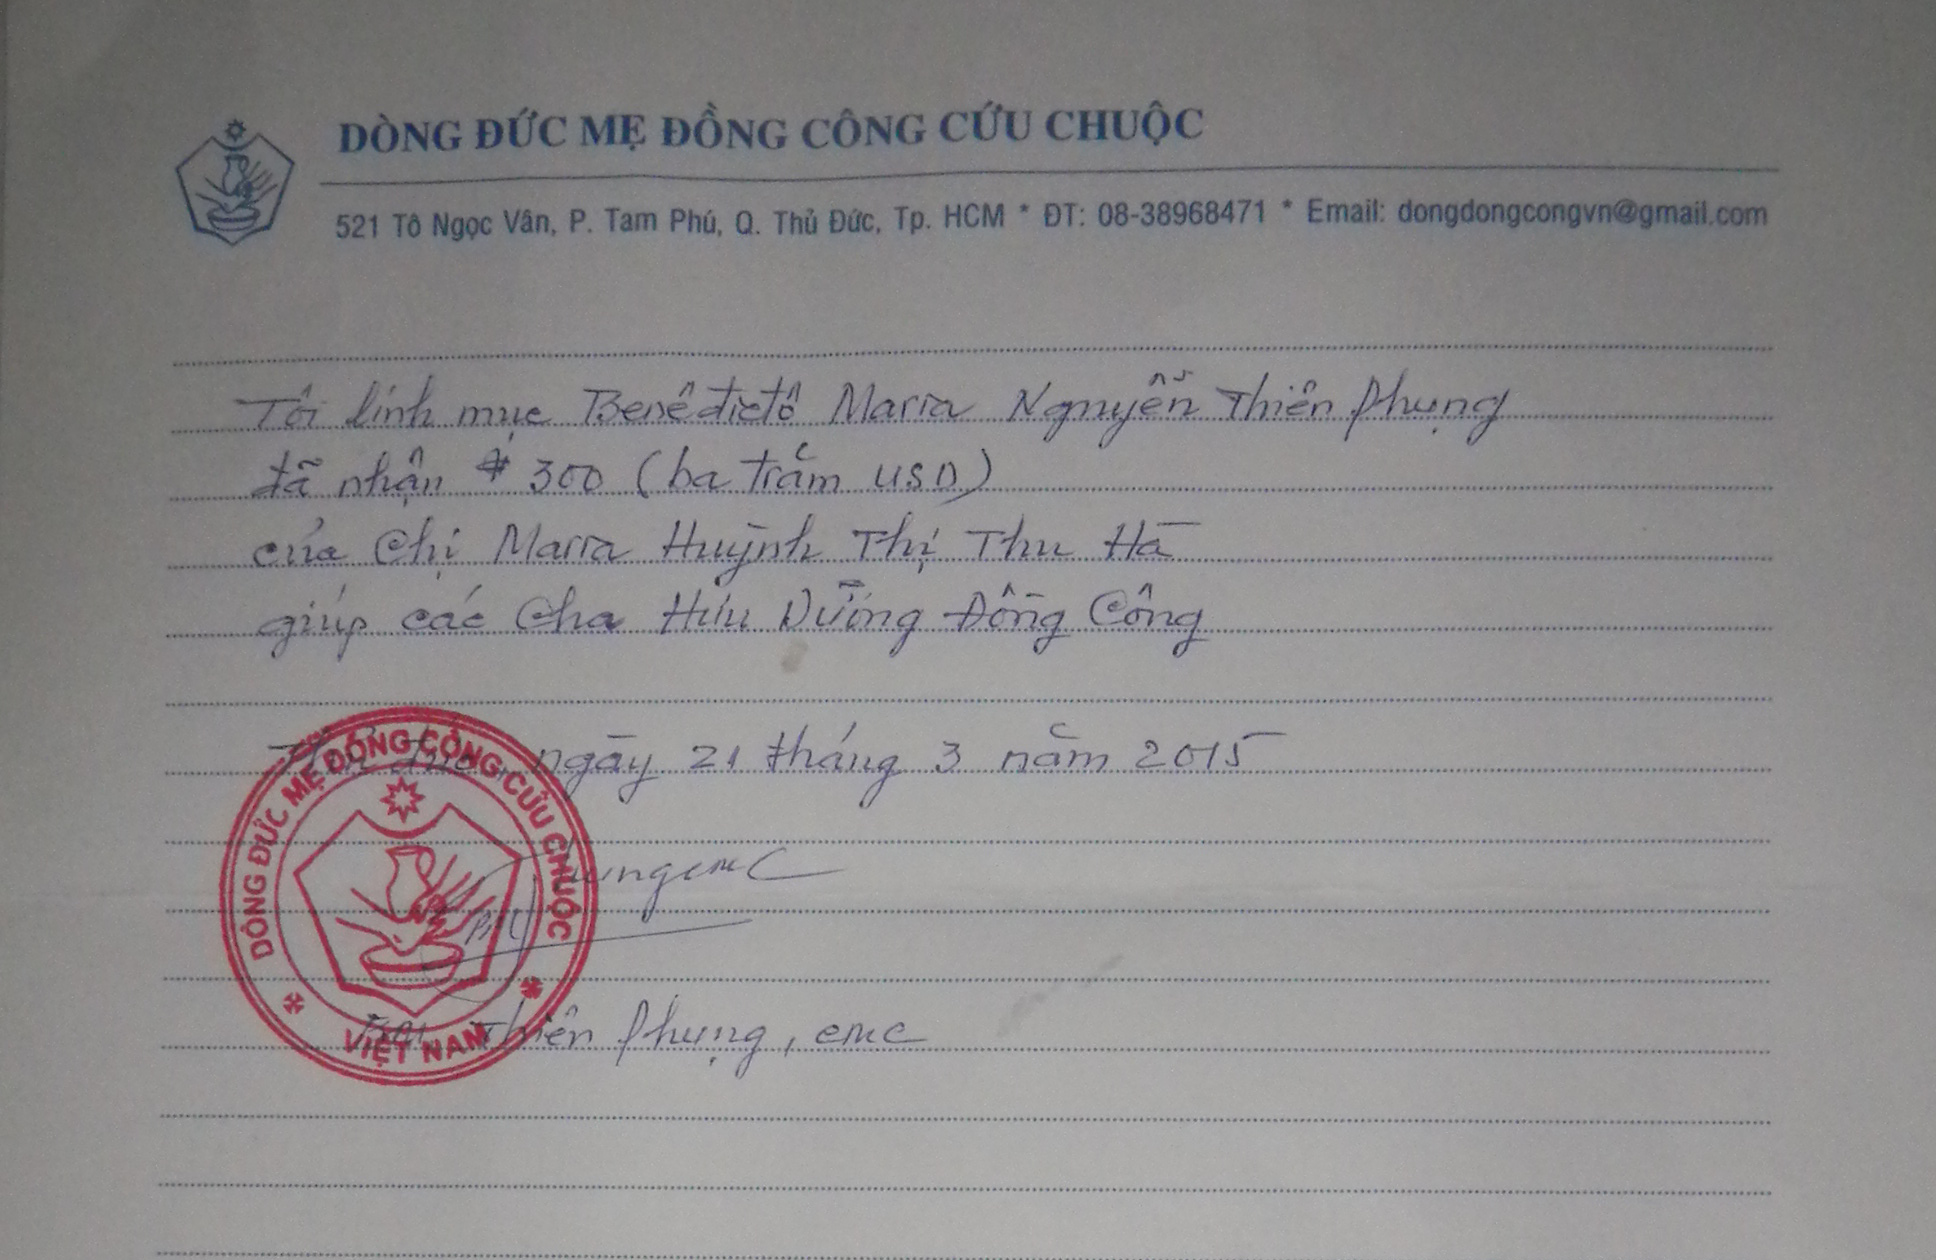 DÒNG ĐỨC MẸ ĐỒNG CÔNG CỨU CHUỘC
521 Tô Ngọc Vân, P. Tam Phú, Q. Thủ Đức, Tp. HCM * ĐT: 08-38968471 * Email: dongdongcongvn@gmail.com
Tôi linh mục Benêđictô Maria Nguyễn Thiên Phụng
đã nhận $ 300 (ba trăm USD)
của Chị Maria Huỳnh Thị Thu Hà
giúp các Cha Hưu Dưỡng Đồng Công
Thủ đức, ngày 21 tháng 3 năm 2015
DÒNG ĐỨC MẸ ĐỒNG CÔNG CỨU CHUỘC
VIỆT NAM
Thiên Phụng, CMC